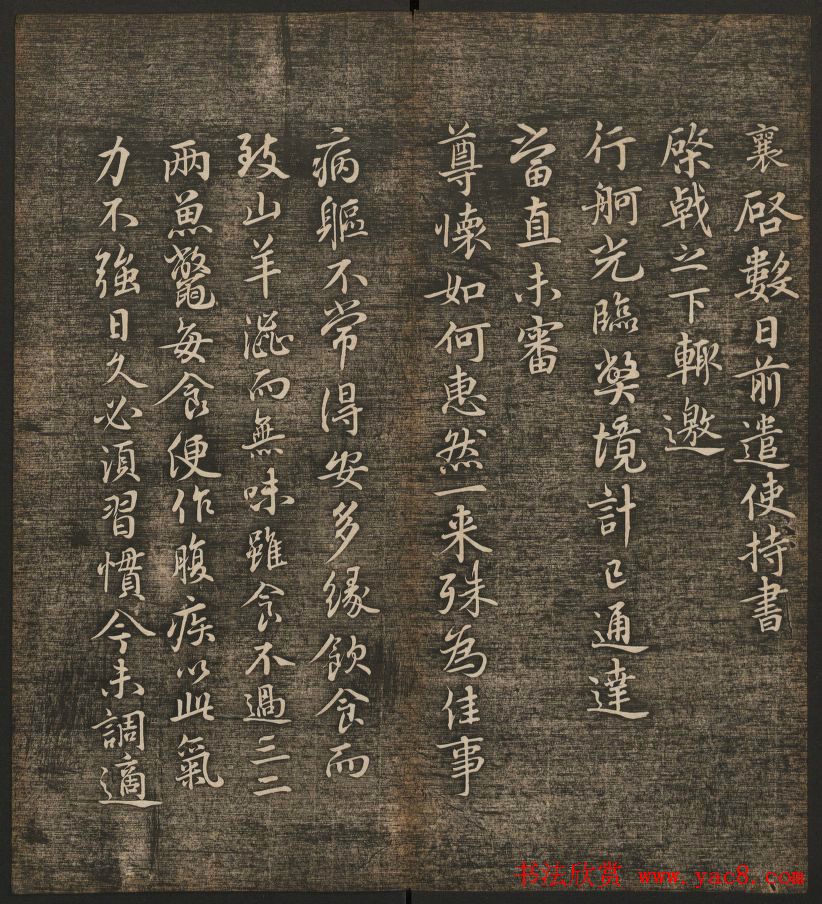 襄啓數日前遣使持書
棨戟之下輙邀
行舸光臨獘境計已通達
當直未審
尊懷如何惠然一来殊為佳事
病軀不常得安多緣飲食而
致山羊澁而無味雖食不過三二
兩魚鱉每食便作腹疾以此氣
力不強日久必須習慣今未調適
书法欣赏 www.yac8.com